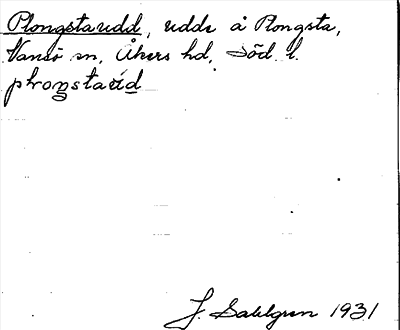 Plongstaudd, udde å Plongsta,
Vansö sn, Åkers hd, Söd. l.
J. Sahlgren 1931